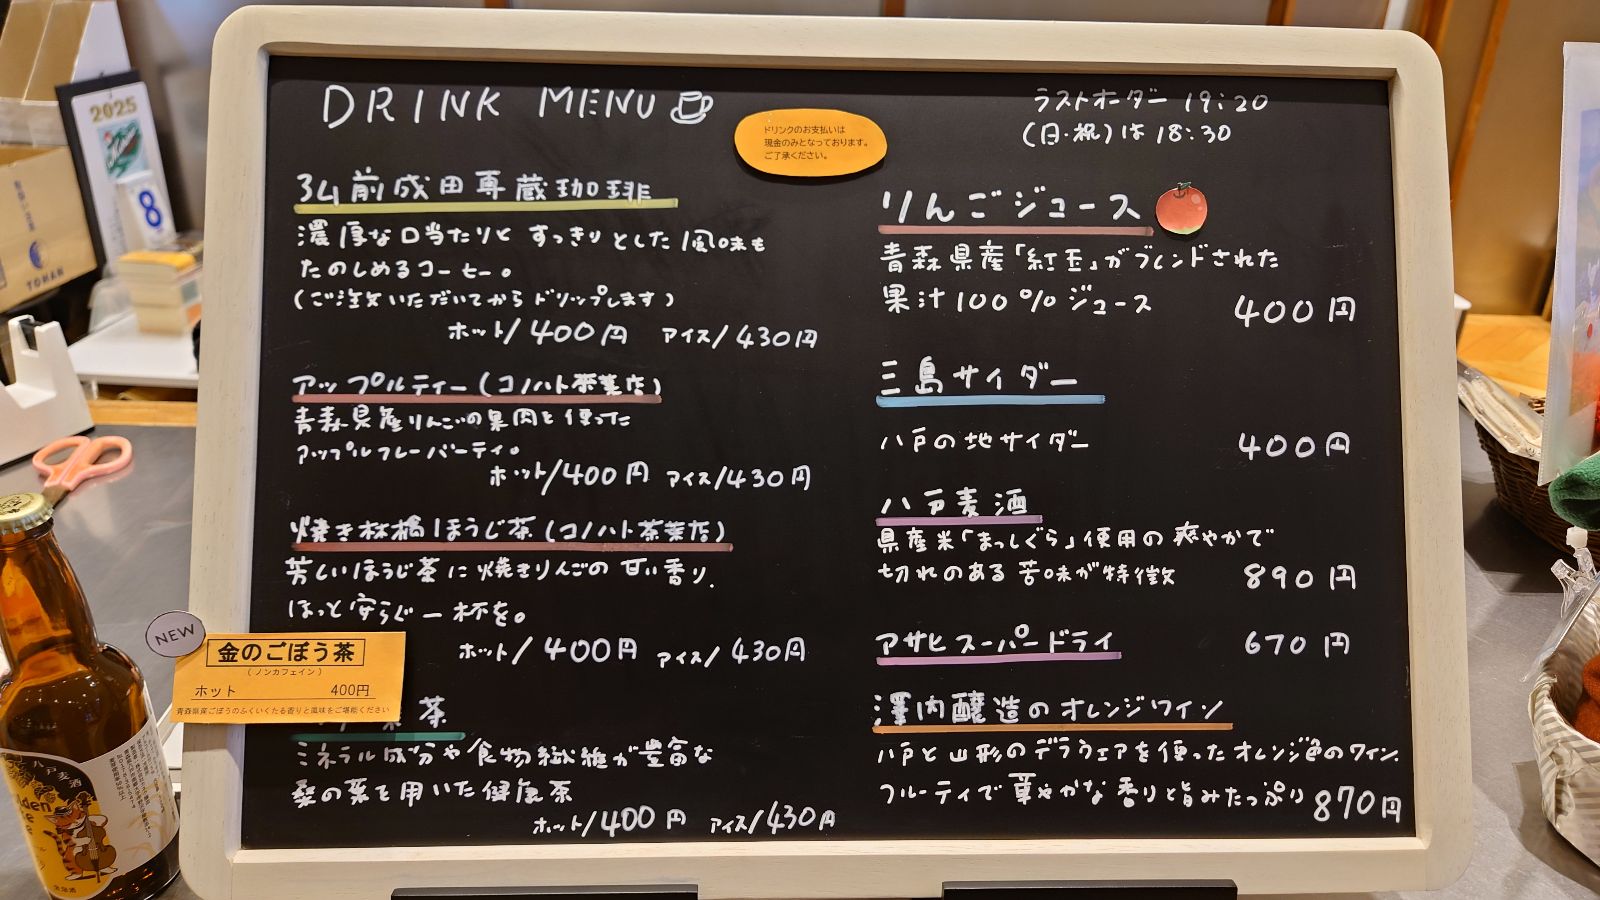 DRINK MENU
ラストオーダー 19:20
(日・祝)は 18:30
ドリンクのお支払いは
現金のみとなっております。
ご了承ください。
34前成田専蔵珈琲
濃厚な口当たりと すっきりとした風味も
たのしめるコーヒー。
(ご注文いただいてからドリップします)
ホット/400円 アイス/430円
アップルティー(コノハト茶葉店)
青森県産りんごの果肉を使った
アップルフレーバーティ。
ホット/400円 アイス/430円
焼き林檎ほうじ茶(コノハト茶葉店)
芳しいほうじ茶に焼きりんごの甘い香り.
ほっと安らぐ一杯を。
ホット/400円 アイス/430円
NEW
金のごぼう茶
(ノンカフェイン)
ホット 400円
青森県産ごぼうのふくいくたる香りと風味をご堪能ください
茶
ミネラル成分や食物繊維が豊富な
桑の葉を用いた健康茶
ホット/400円 アイス/430円
りんごジュース
青森県産「紅玉」がブレンドされた
果汁100%ジュース 400円
三島サイダー
八戸の地サイダー 400円
八戸麦酒
県産米「まっしぐら」使用の爽やかで
切れのある苦味が特徴 890円
アサヒスーパードライ 670円
澤内醸造のオレンジワイン
八戸と山形のデラウェアを使ったオレンジ色のワイン.
フルーティで華やかな香りと旨みたっぷり 870円
2025
8
TOHAN
八戸麦酒